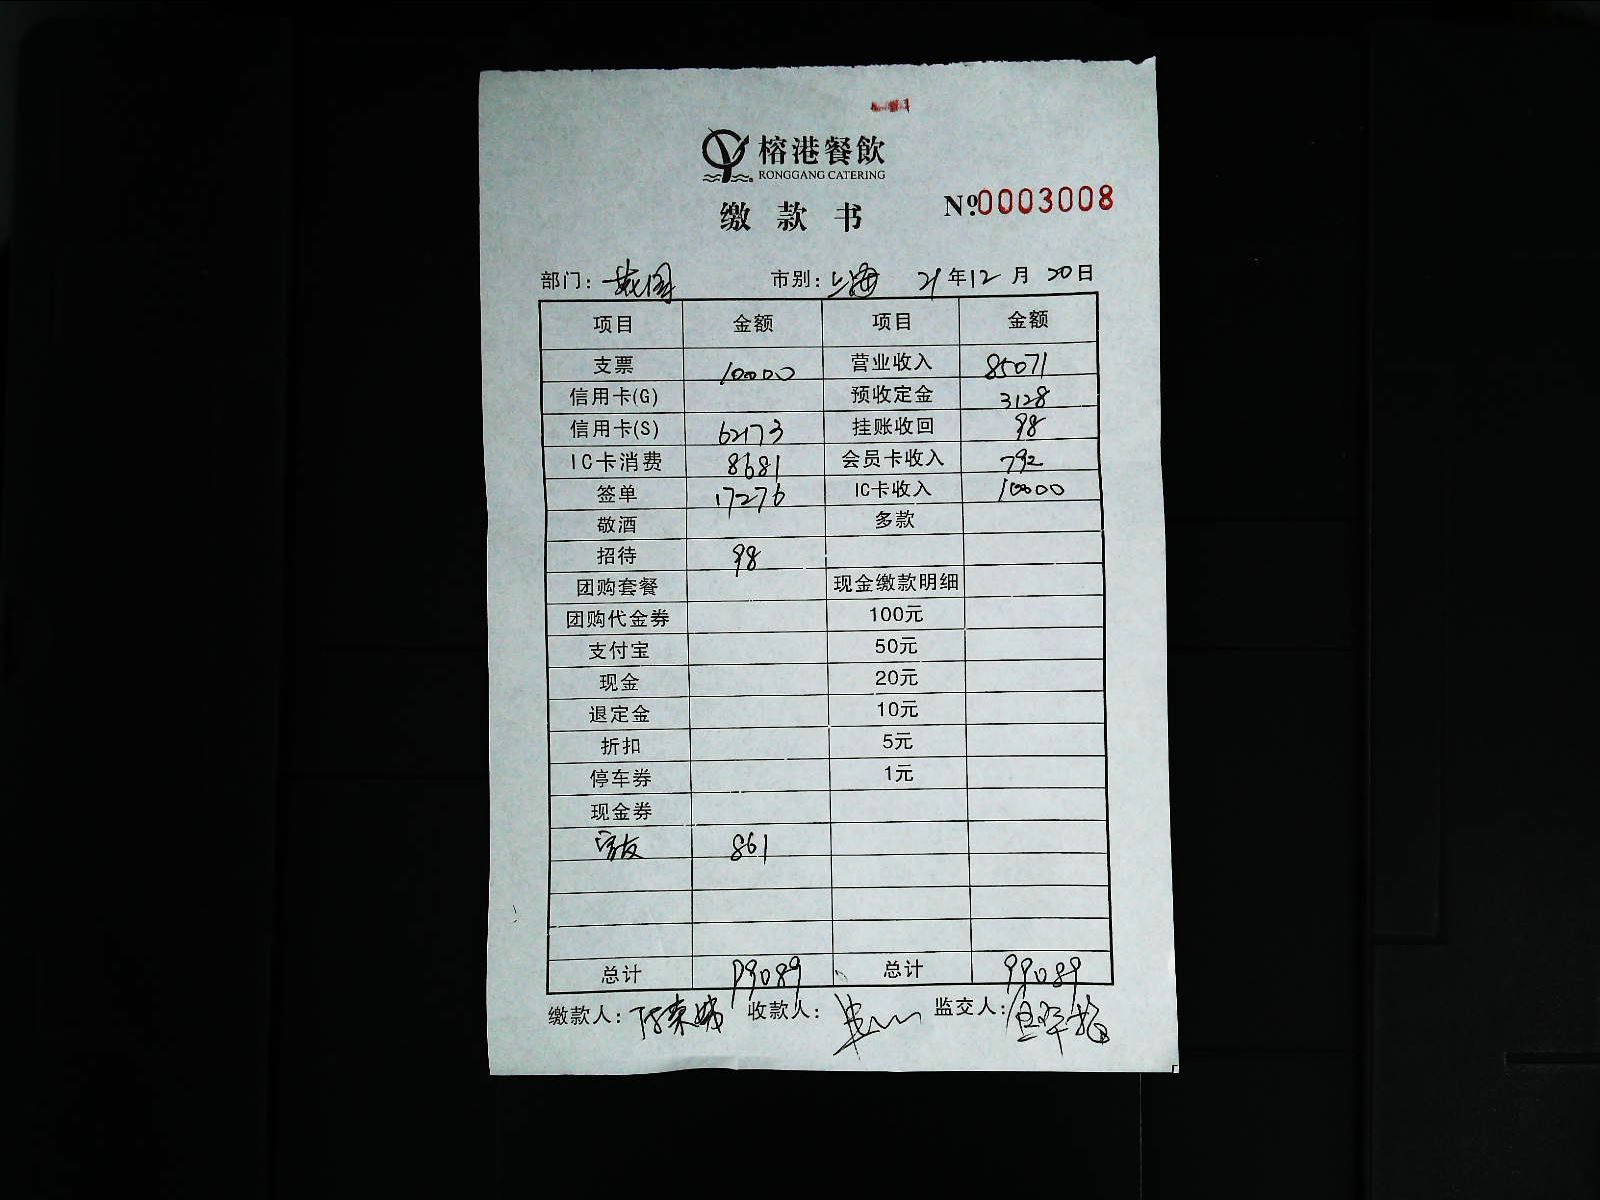 榕港餐飲
RONGGANG CATERING
缴款书 №0003008
部门: 市别: 上海 21年12月20日
项目 金额 项目 金额
支票 10000 营业收入 85071
信用卡(G) 预收定金 3128
信用卡(S) 62173 挂账收回 98
IC卡消费 8681 会员卡收入 792
签单 17276 IC卡收入 10000
敬酒 多款
招待 98
团购套餐 现金缴款明细
团购代金券 100元
支付宝 50元
现金 20元
退定金 10元
折扣 5元
停车券 1元
现金券
861
总计 99089 总计 99089
缴款人: 收款人: 监交人: